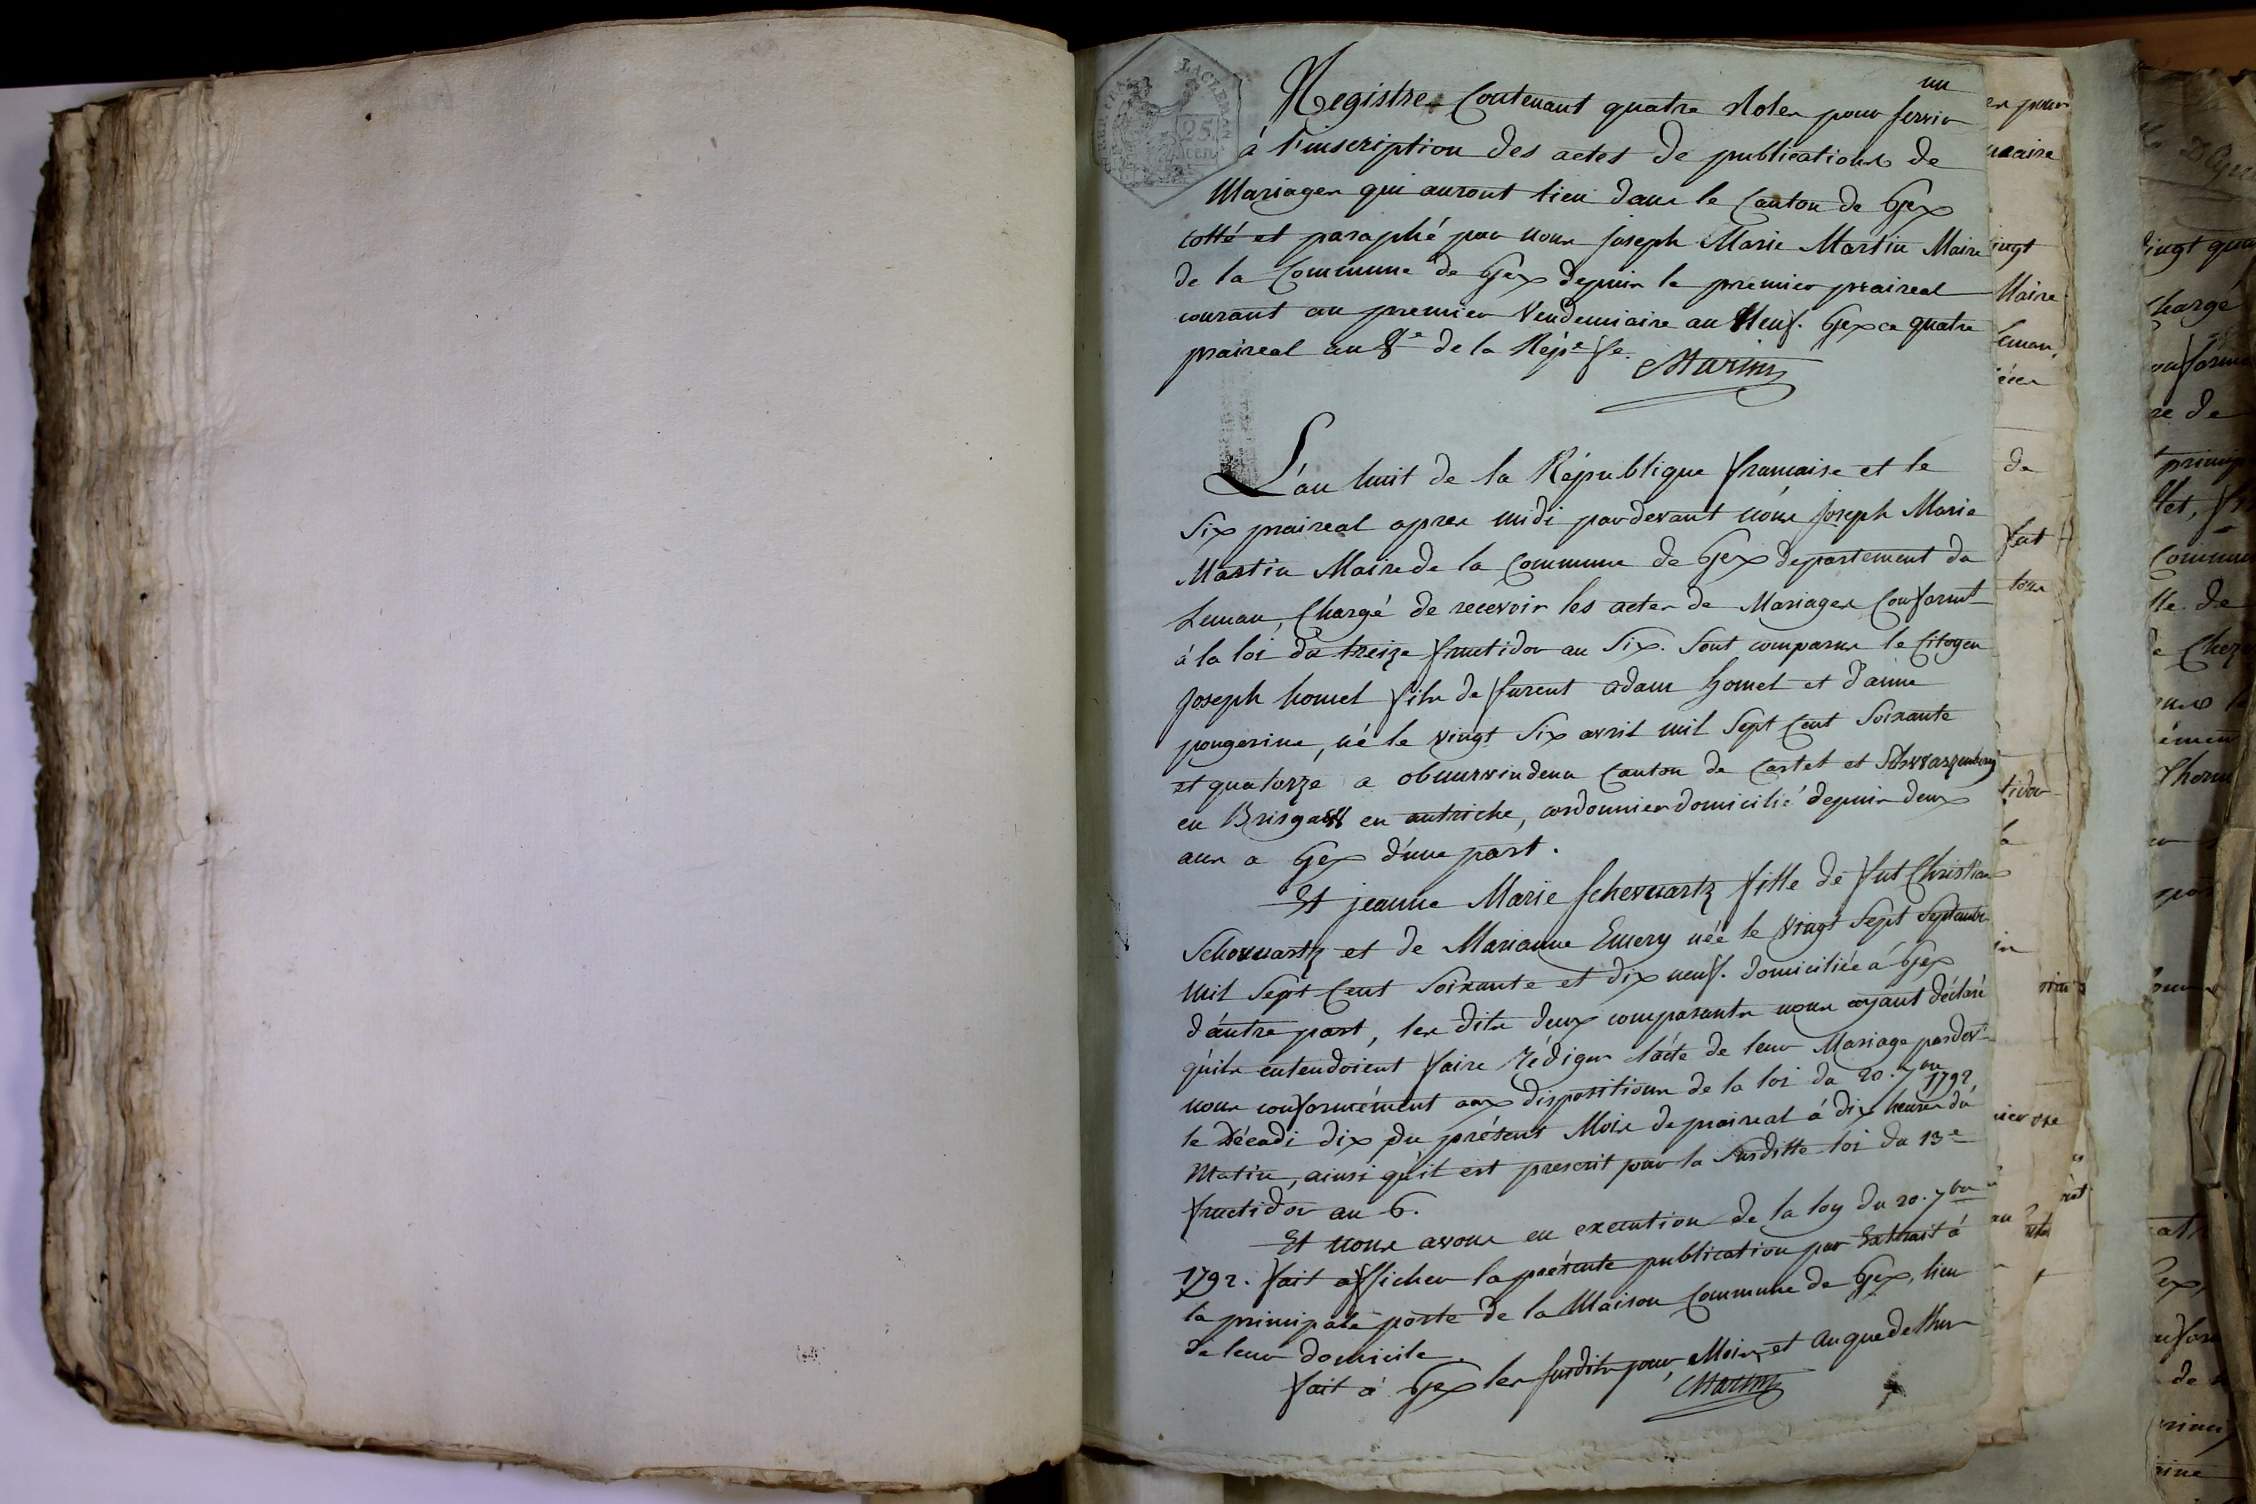 un
Registre Contenant quatre Roles pour servir
à l'inscription des actes de publications de
Mariages qui auront lieu dans le Canton de Gex
cotté et paraphé par nous joseph Marie Martin Maire
de la Commune de Gex depuis le premier praireal
courant au premier Vendemiaire an Neuf. Gex ce quatre
praireal an 8e de la Répe fe.
Martin
L'an huit de la République francaise et le
Six praireal apres midi pardevant nous joseph Marie
Martin Maire de la Commune de Gex departement du
Leman, Chargé de recevoir les actes de Mariages Conformt
à la loi du treize fructidor an Six. Sont comparus le Citoyen
Joseph homel fils de furent adam homel et d'anne
pongerine, né le vingt Six avril mil Sept Cent Soixante
et quatorze a obmurvindenn Canton de Castel et Schwarzenberg
en Brisgaw en autriche, cordonnier domicilié depuis deux
ans a Gex d'une part.
Et jeanne Marie Schevuartz fille de fut Christian
Schovuartz et de Marianne Emery née le vingt Sept Septembre
mil Sept Cent Soixante et dix neuf. domiciliée à Gex
d'autre part, les dits deux comparants nous ayant déclaré
qu'ils entendoient faire rédiger l'acte de leur Mariage pardevt
nous conformément aux dispositions de la loi du 20. 7bre 1792,
le Décadi dix du présent Mois de praireal à dix heures du
Matin, ainsi qu'il est prescrit par la Susditte loi du 13e
fructidor an 6.
Et nous avons en execution de la loy du 20. 7bre
1792. fait afficher la présente publication par Extrait à
la principale porte de la Maison Commune de Gex, lieu
de leur domicile.
fait à Gex les susdits jour, Mois, et an que dessus
Martin